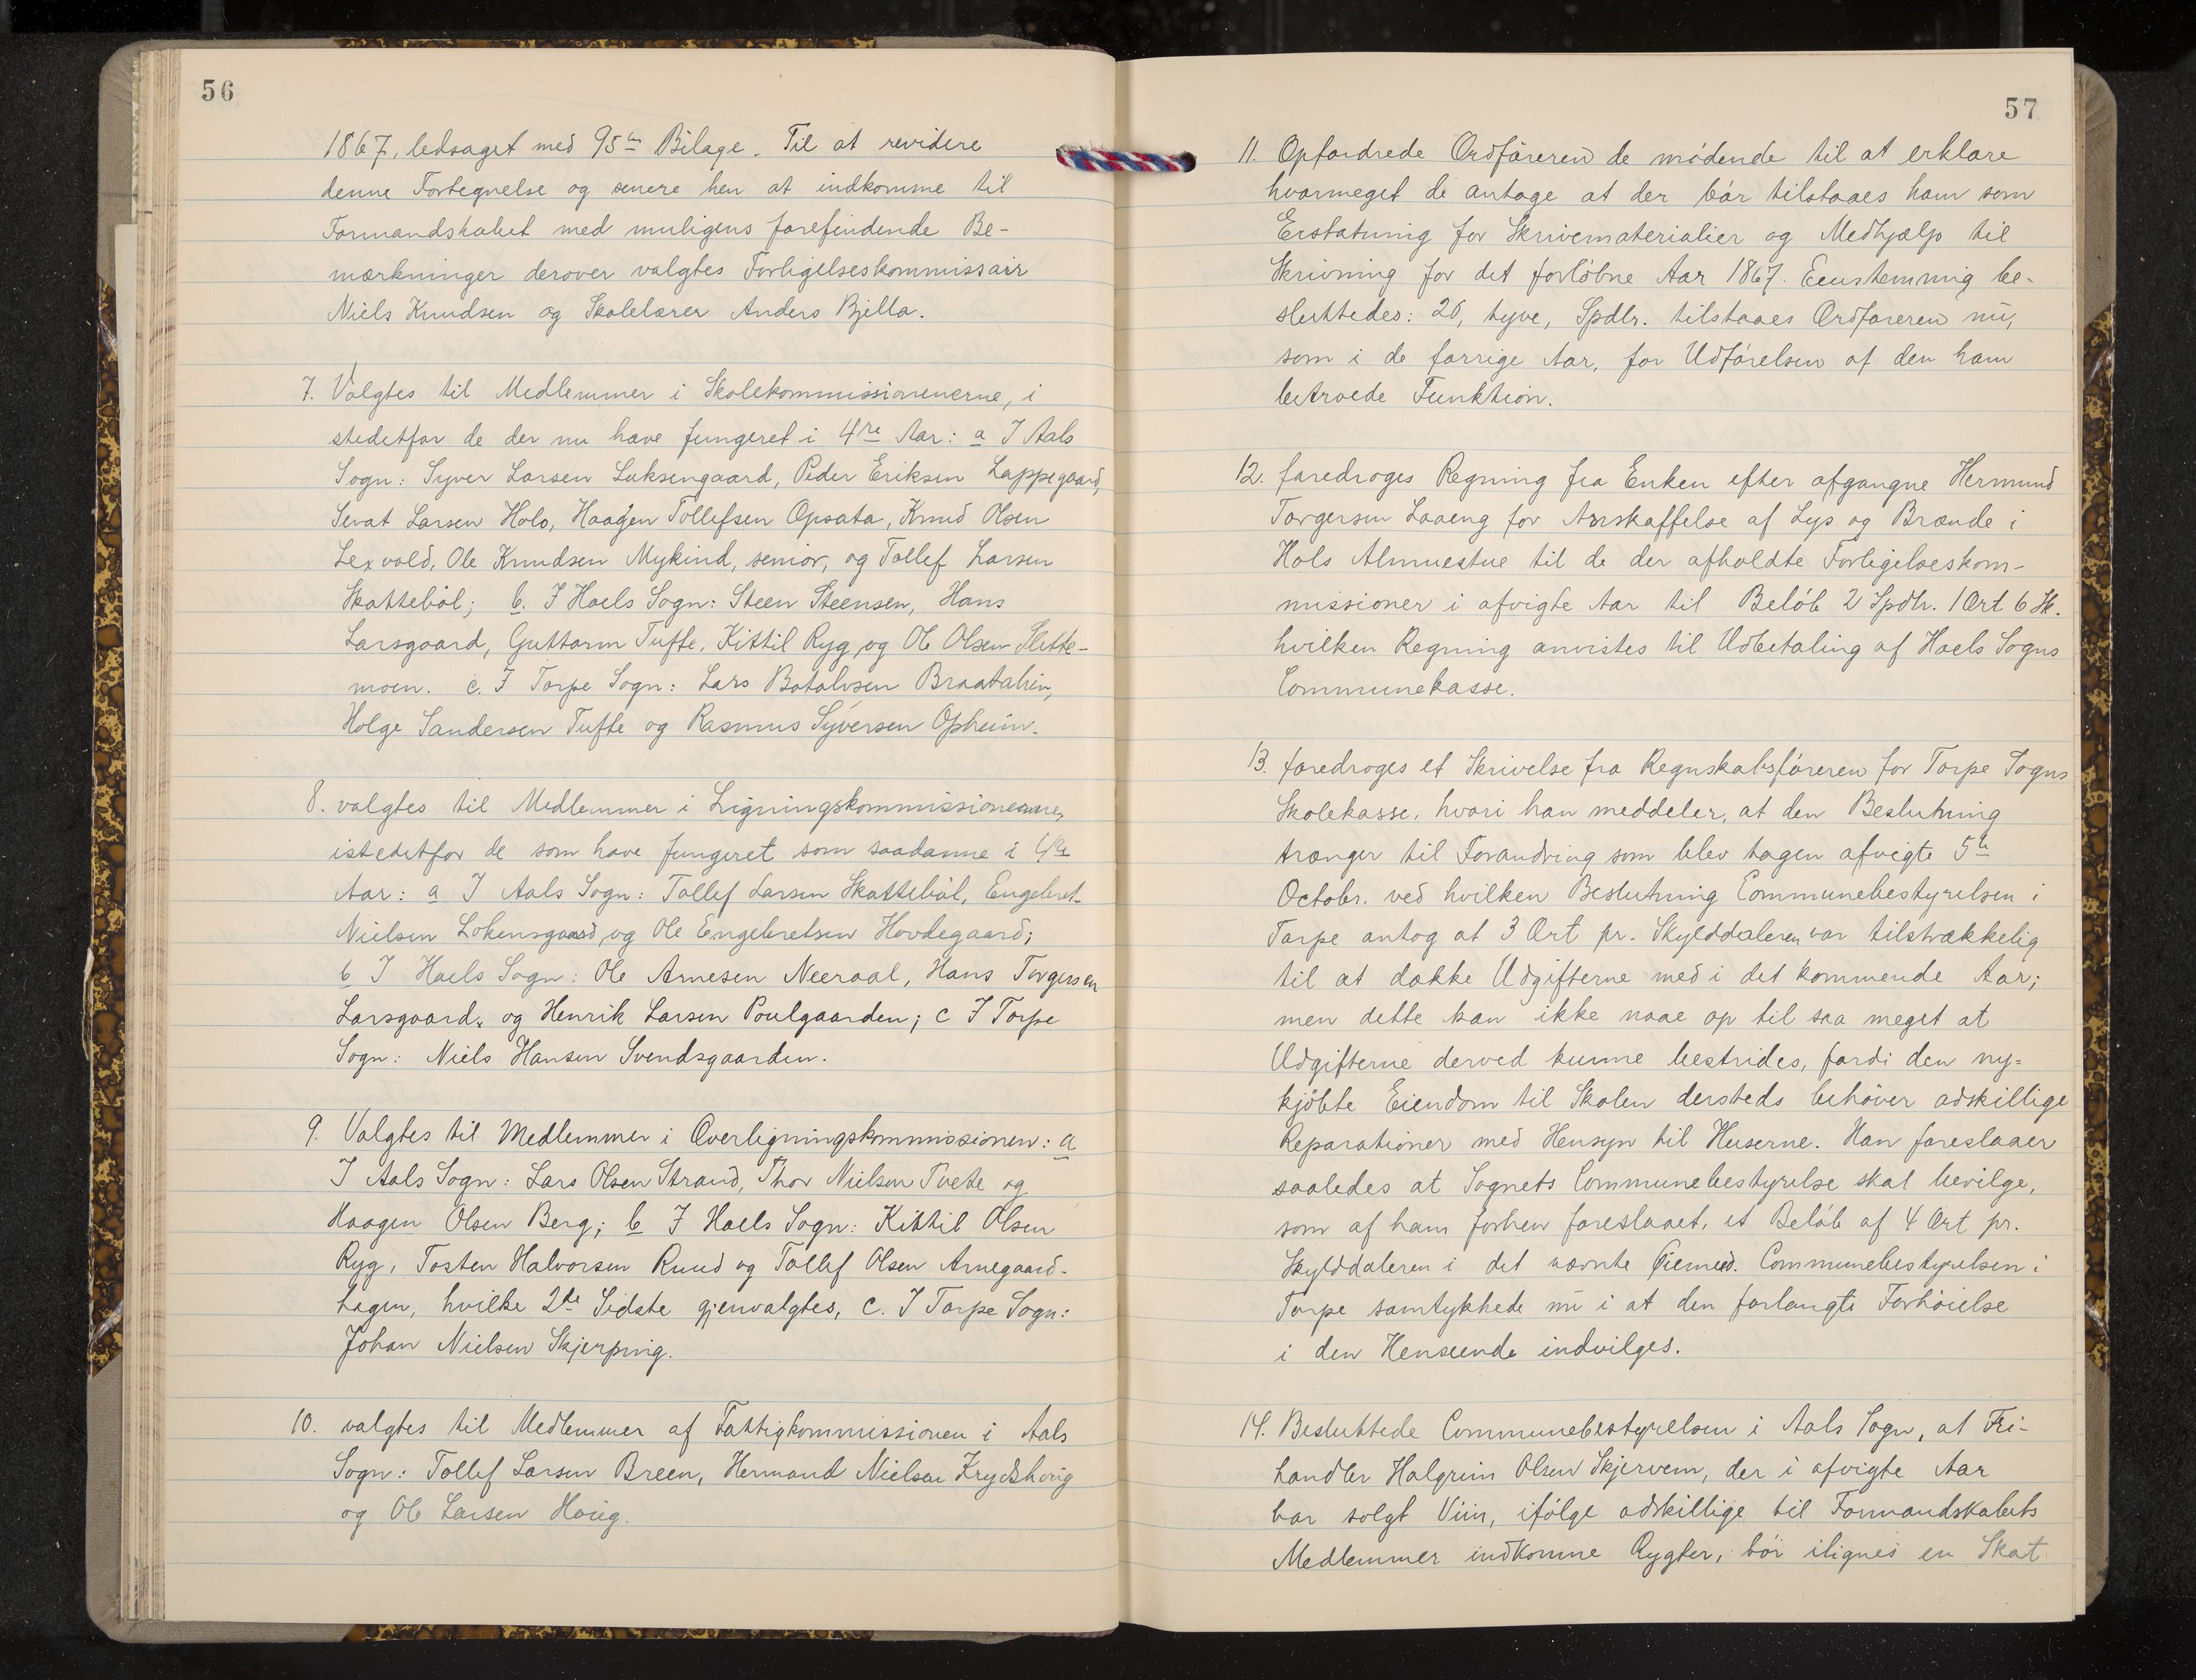 56
1867, ledsaget med 95 Bilage. Til at revidere
denne Fortegnelse og senere hen at indkomme til
Formandskabet med muligens forefindende Be-
mærkninger derover valgtes Forligelseskommissair
Niels Knudsen og Skolelærer Anders Bjella.
7. Valgtes til Medlemmer i Skolekommissionenerne, i
stedetfor de der nu have fungeret i 4re Aar: a I Aals
Sogn: Syver Larsen Luksengaard, Peder Eriksen Lappegaard,
Sevat Larsen Holo, Haagen Tollefsen Opsata, Knud Olsen
Lexvold, Ole Knudsen Mykind, senior, og Tollef Larsen
Skattebøl; b. I Hoels Sogn: Steen Steensen, Hans
Larsgaard, Guttorm Tufte, Kittil Ryg og Ole Olsen Slette-
moen. c. I Torpe Sogn: Lars Botolvsen Braatalien,
Holge Sandersen Tufte og Rasmus Syversen Opheim.
8. valgtes til Medlemmer i Ligningskommissionerne,
istedetfor de som have fungeret som saadanne i 4re
Aar: a I Aals Sogn: Tollef Larsen Skattebøl, Engebret
Nielsen Lokensgaard, og Ole Engebretsen Hovdegaard;
b I Hoels Sogn: Ole Arnesen Neeraal, Hans Torgersen
Larsgaard, og Henrik Larsen Poulgaarden; c I Torpe
Sogn: Niels Hansen Svendsgaarden.
9. Valgtes til Medlemmer i Overligningskommissionen: a
I Aals Sogn: Lars Olsen Strand, Thor Nielsen Tvete og
Haagen Olsen Berg; b I Hoels Sogn: Kittil Olsen
Ryg, Tosten Halvorsen Ruud og Tollef Olsen Arnegaard-
hagen, hvilke 2de Sidste gjenvalgtes, c. I Torpe Sogn:
Johan Nielsen Skjerping.
10. valgtes til Medlemmer af Fattigkommissionen i Aals
Sogn: Tollef Larsen Breen, Hermand Nielsen Krydshoug
og Ole Larsen Houg.
57
11. Opfordrede Ordføreren de mødende til at erklare
hvormeget de antage at der bør tilstaaes ham som
Erstatning for Skrivematerialier og Medhjælp til
Skrivning for det forløbne Aar 1867. Eenstemmig be-
sluttedes: 20, tyve, Spdlr. tilstaaes Ordføreren nu,
som i de forrige Aar, for Udførelsen af den ham
betroede Funktion.
12. foredroges Regning fra Enken efter afgangne Hermund
Torgersen Laaeng for Anskaffelse af Lys og Brænde i
Hols Almuestue til de der afholdte Forligelseskom-
missioner i afvigte Aar til Beløb 2 Spdlr. 1 Ort 6 Sk.
hvilken Regning anvistes til Udbetaling af Hoels Sogns
Communekasse.
13. foredroges et Skrivelse fra Regnskabsføreren for Torpe Sogns
Skolekasse, hvori han meddeler, at den Beslutning
trænger til Forandring som blev tagen afvigte 5te
Octobr. ved hvilken Beslutning Communebestyrelsen i
Torpe antog at 3 Ort pr. Skylddaleren var tilstrækkelig
til at dække Udgifterne med i det kommende Aar;
men dette kan ikke naae op til saa meget at
Udgifterne derved kunne bestrides, fordi den ny=
kjöbte Eiendom til Skolen dersteds behöver adskillige
Reparationer med Hensyn til Huserne. Han foreslaaer
saaledes at Sognets Communebestyrelse skal bevilge,
som af ham forhen foreslaaet, et Beløb af 4 Ort pr.
Skylddaleren i det nævnte Øiemed. Communebestyrelsen i
Torpe samtykkede nu i at den forlangte Forhöielse
i den Henseende indvilges.
14. Besluttede Communebestyrelsen i Aals Sogn, at Fri-
handler Halgrim Olsen Skjervem, der i afvigte Aar
har solgt Viin, ifølge adskillige til Formandskabets
Medlemmer indkomne Rygter, bör ilignes en Skat